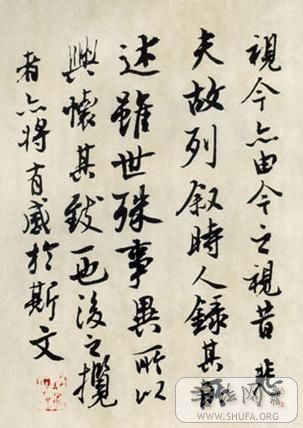 視今亦由今之視昔悲
夫故列叙時人録其所
述雖世殊事異所以
興懷其致一也後之攬
者亦將有感於斯文
书法网
WWW.SHUFA.ORG